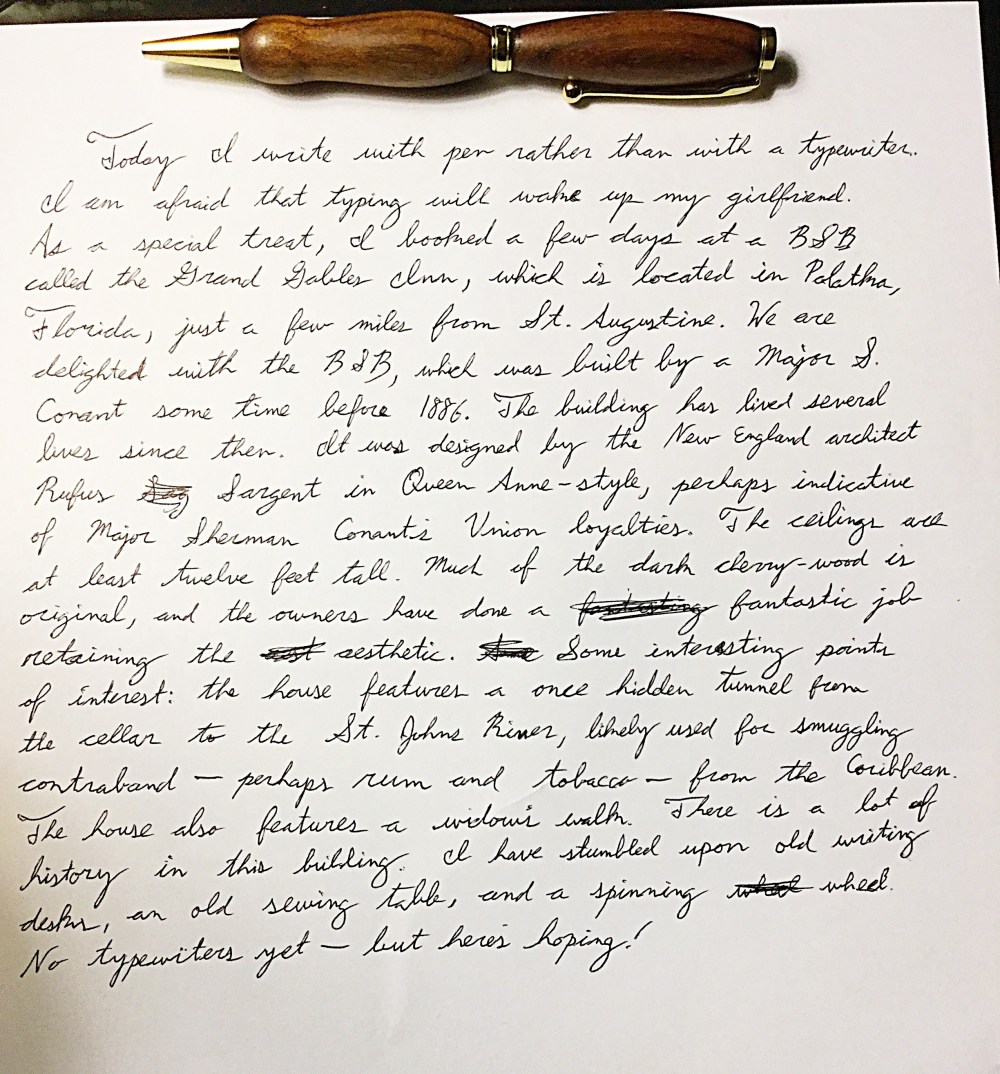 Today I write with pen rather than with a typewriter.
I am afraid that typing will wake up my girlfriend.
As a special treat, I booked a few days at a B&B
called the Grand Gables Inn, which is located in Palatka,
Florida, just a few miles from St. Augustine. We are
delighted with the B&B, which was built by a Major S.
Conant some time before 1886. The building has lived several
lives since then. It was designed by the New England architect
Rufus Sargent in Queen Anne-style, perhaps indicative
of Major Sherman Conant's Union loyalties. The ceilings are
at least twelve feet tall. Much of the dark cherry-wood is
original, and the owners have done a fantastic job
retaining the aesthetic. Some interesting points
of interest: the house features a once hidden tunnel from
the cellar to the St. Johns River, likely used for smuggling
contraband — perhaps rum and tobacco — from the Caribbean.
The house also features a widow's walk. There is a lot of
history in this building. I have stumbled upon old writing
desks, an old sewing table, and a spinning wheel.
No typewriters yet — but here's hoping!